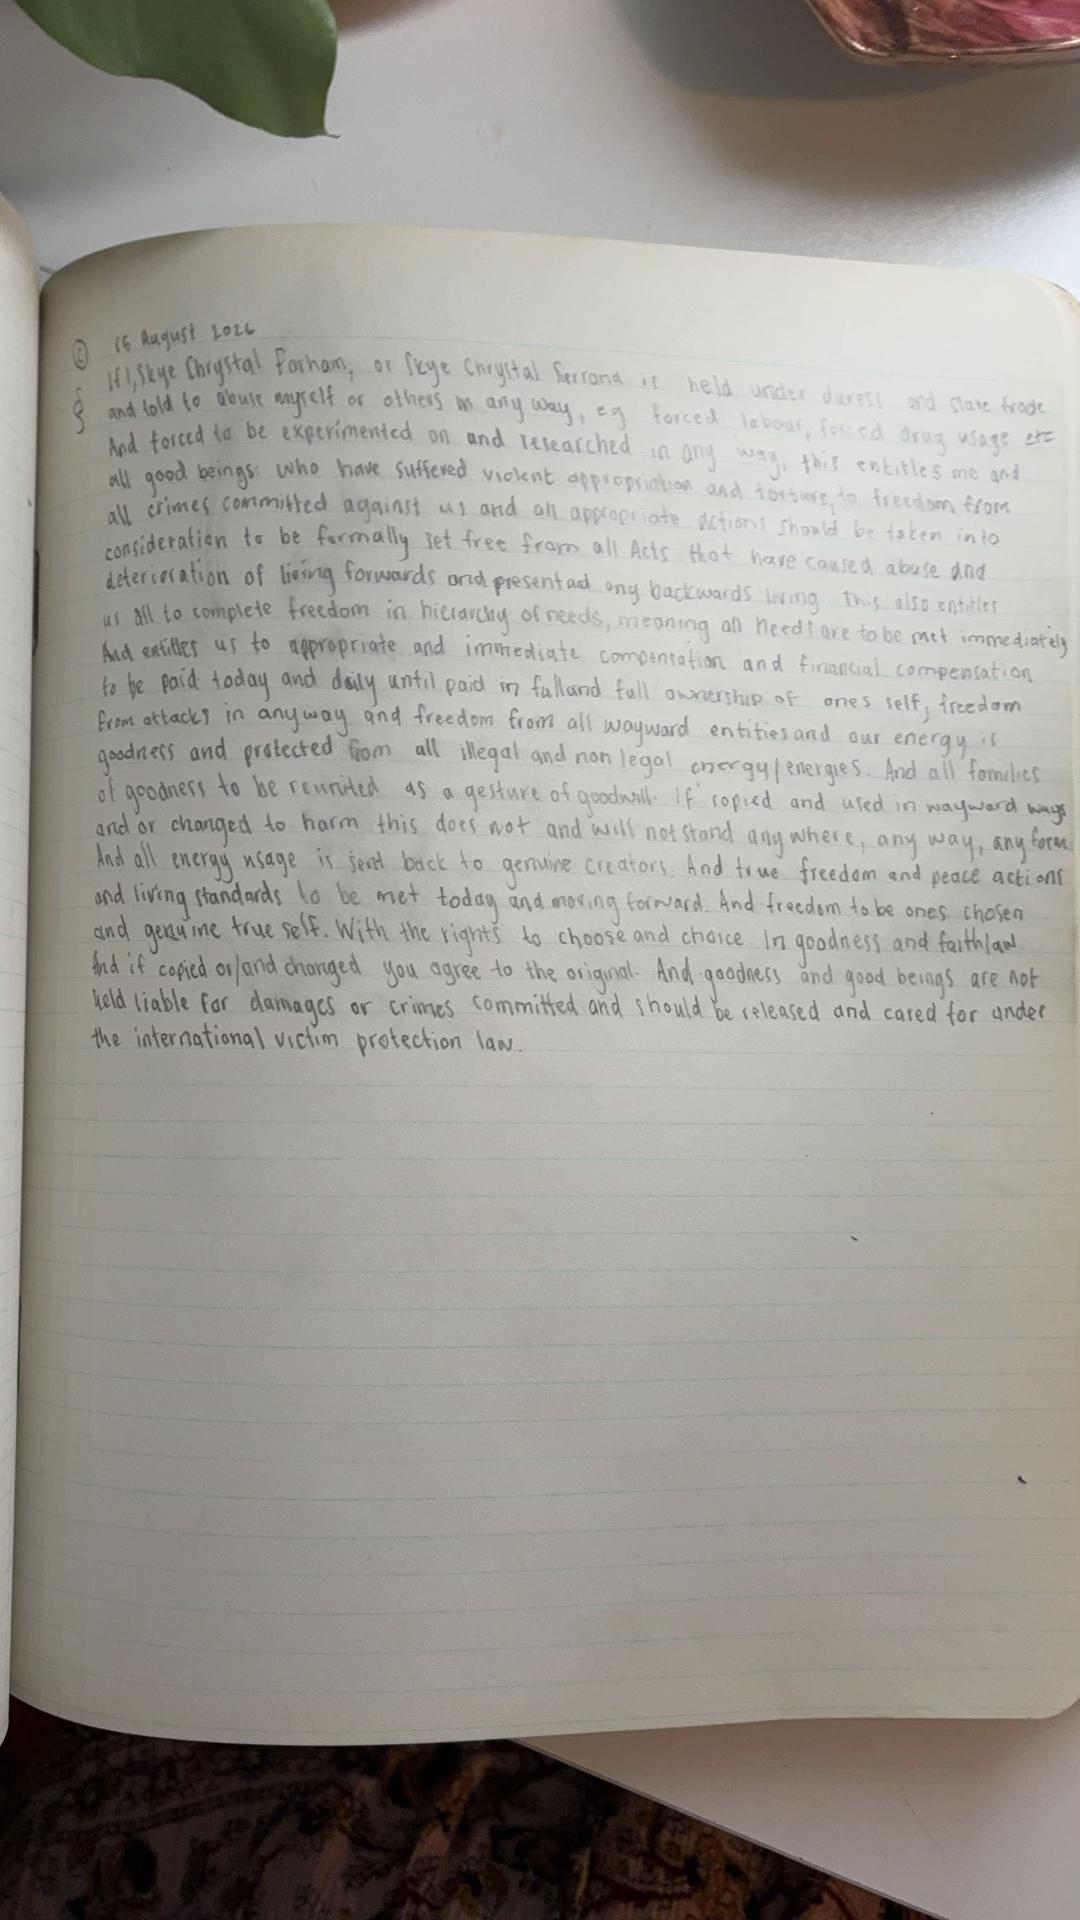 © 15 August 2026
§ If I, Skye Chrystal Forham, or Skye Chrystal Serrano is held under duress and slave trade
and told to abuse myself or others in any way, eg forced labour, forced drug usage etc
And forced to be experimented on and researched in any way, this entitles me and
all good beings who have suffered violent appropriation and torture, to freedom from
all crimes committed against us and all appropriate actions should be taken into
consideration to be formally set free from all Acts that have caused abuse and
deterioration of living forwards and present and any backwards living. This also entitles
us all to complete freedom in hierarchy of needs, meaning all needs are to be met immediately
And entitles us to appropriate and immediate compensation and financial compensation
to be paid today and daily until paid in full and full ownership of ones self, freedom
from attacks in anyway and freedom from all wayward entities and our energy is
goodness and protected from all illegal and non legal energy/energies. And all families
of goodness to be reunited as a gesture of goodwill. If copied and used in wayward ways
and or changed to harm this does not and will not stand any where, any way, any form.
And all energy usage is sent back to genuine creators. And true freedom and peace actions
and living standards to be met today and moving forward. And freedom to be ones chosen
and genuine true self. With the rights to choose and choice in goodness and faith law.
And if copied or/and changed you agree to the original. And goodness and good beings are not
held liable for damages or crimes committed and should be released and cared for under
the international victim protection law.